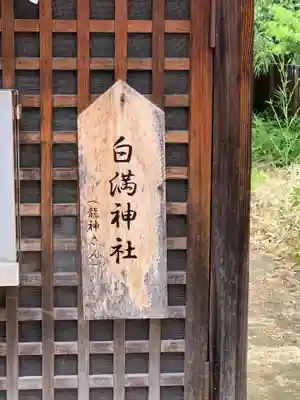 白満神社
(龍神さん)